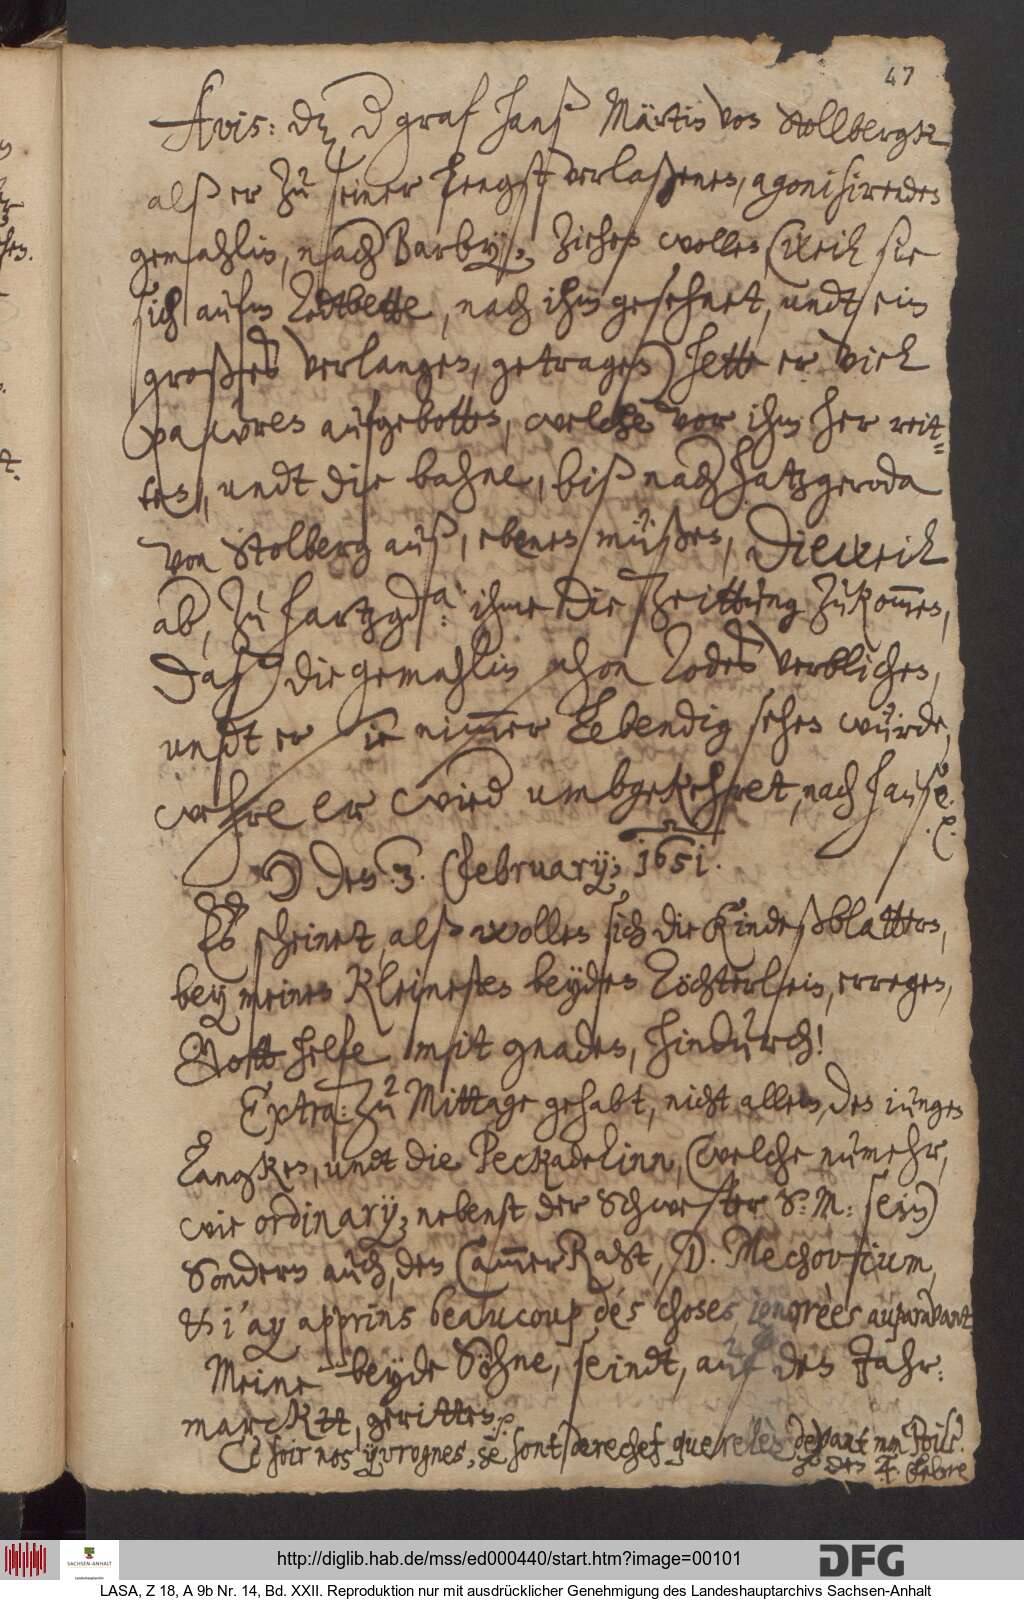 47
Avis: dz d graf Hanß Märtin von Stollbergk
alß er zu seiner längst verlaßenen, agonisirenden
gemahlin, nach Barby, ziehen wollen (weil sie
sich aufm Todtbette, nach ihm gesehnet, undt ein
großes verlangen, getragen) hette er viel
pawren aufgebotten, welche vor ihm her reit-
ten, undt die bahne, biß nach Hatzgeroda
von Stolberg auß, ebenen müßen, Dieweil
ab, zu Hartzgda: ihme die Zeittung zukom̅en,
Daß die gemahlin schon Todes verblichen,
undt er sie nim̅er lebendig sehen würde,
wehre er wied umbgekehret, nach Hause.
☽ den: 3. February; 1651.
Es scheinet, alß wollen sich die Kindeßblattern,
bey meinen kleinesten beyden Töchterlein, erregen,
Gott helfe mit gnaden, hindurch!
Extra: zu Mittage gehabt, nicht allein, den iungen
Langken, undt die Peckadelinn, (welche numehr,
wie ordinary, nebenst der Schwester S: M: sein)
Sondern auch, den Cam̅erRaht, D. Mechovium,
et i'ay apprins beaucoup dés choses ignorèes auparavant
Meine beyde Söhne, seindt, auf den Jahr-
marcktt, geritten.
Ce soir nos yvrognes, se sont derechef querellès devant mon
den 4. Febr
http://diglib.hab.de/mss/ed000440/start.htm?image=00101
DFG
SACHSEN-ANHALT
LASA, Z 18, A 9b Nr. 14, Bd. XXII. Reproduktion nur mit ausdrücklicher Genehmigung des Landeshauptarchivs Sachsen-Anhalt